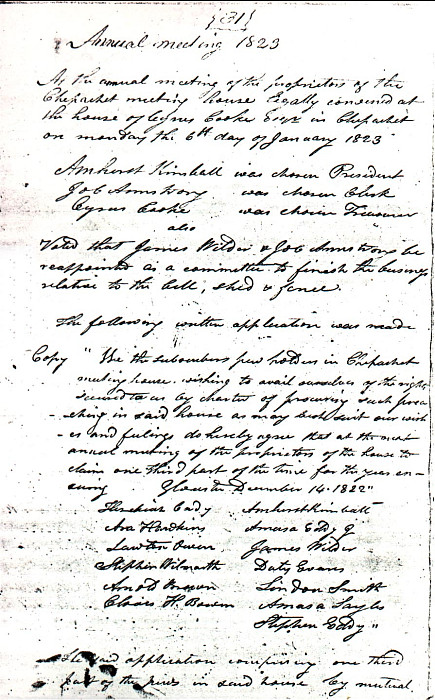 {31}
Annual meeting 1823
At the annual meeting of the proprietors of the
Chepachet meeting house legally convened at
the house of Cyrus Cooke Esqr in Chepachet
on monday the 6th day of January 1823
Amhurst Kimball was chosen President
Job Armstrong was chosen Clerk
Cyrus Cooke was chosen Treasurer
also
Voted that James Wilder & Job Armstrong be
reappointed as a committee to finish the business
relative to the bell, shed & fence.
The following written application was made
Copy "We the subscribers pew holders in Chepachet
meeting house. wishing to avail ourselves of the right
secured to us by charter of procuring such prea
-ching in said house as may best suit our wish
-es and feelings do hereby agree that at the next
annual meeting of the proprietors of the house to
claim one third part of the time for the year en-
suing Glocester December 14. 1822"
Hezekiah Eady Amhurst Kimball
Asa Hawkins Amasa Eddy
Lawton Owen James Wilder
Stephen Wilmarth Daty Evans
Arnold Brown Lindon Smith
H. Bowen Amasa Sayles
Stephen Eddy"
said application comprising one third
part of the pews in said house by mutual